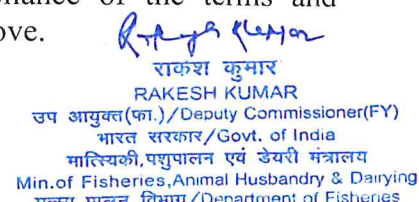 of the terms and
ove.
राकेश कुमार
RAKESH KUMAR
उप आयुक्त(फा.)/Deputy Commissioner(FY)
भारत सरकार/Govt. of India
मात्स्यिकी,पशुपालन एवं डेयरी मंत्रालय
Min.of Fisheries,Animal Husbandry & Dairying
विभाग/Department of Fisheries